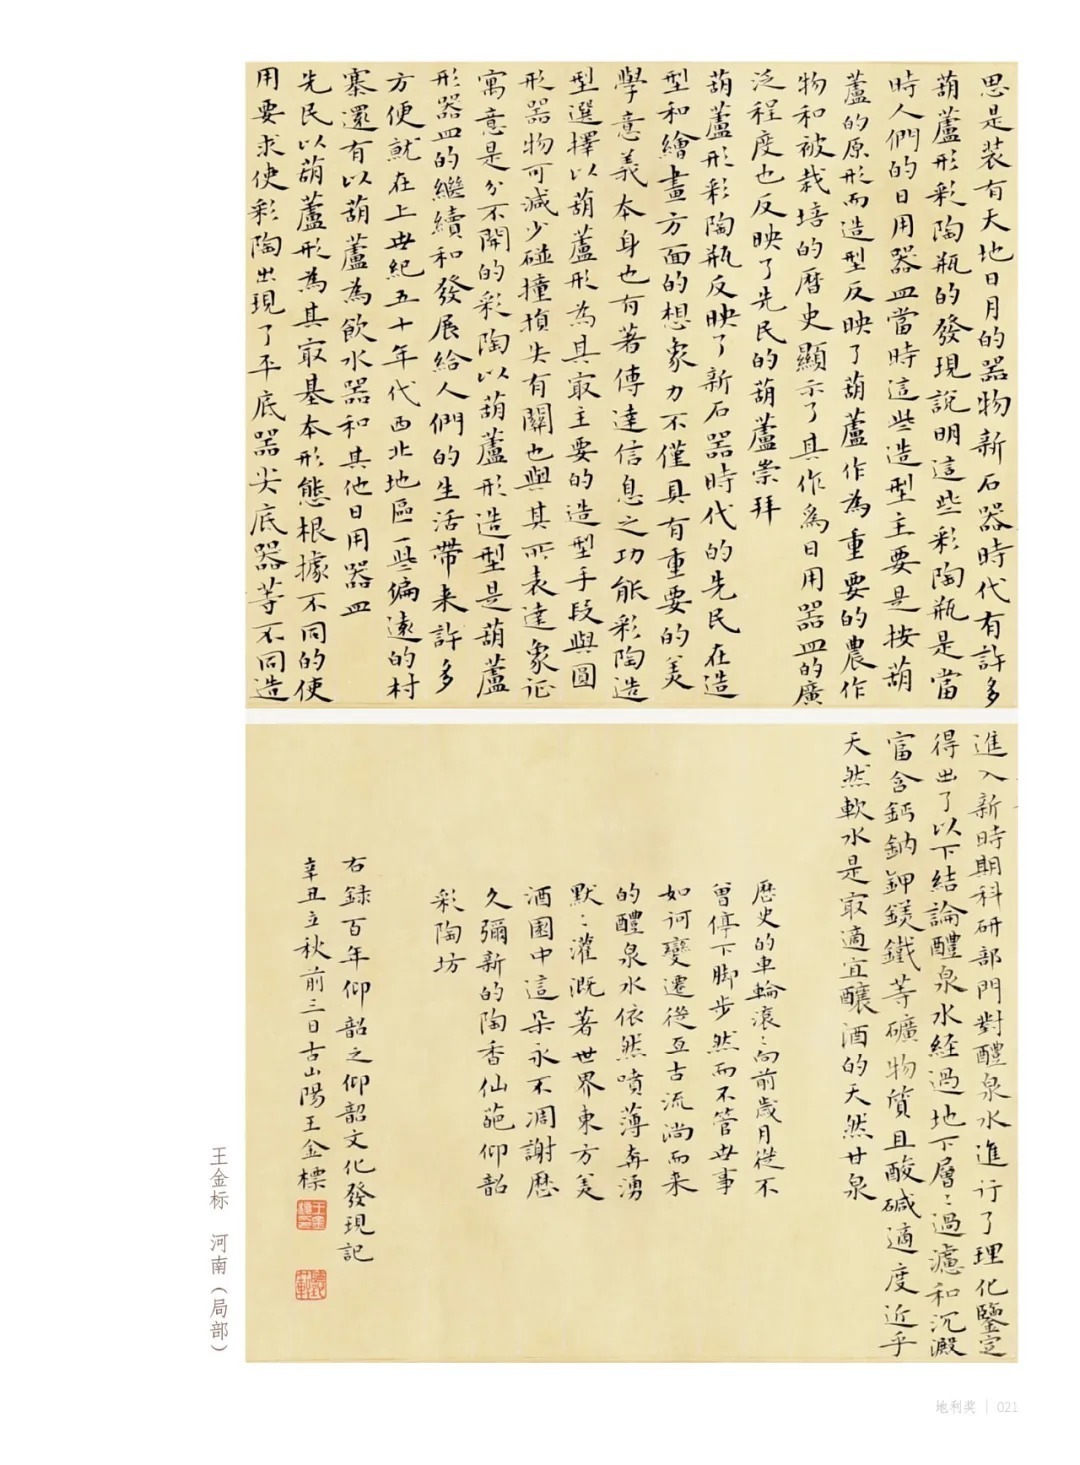 思是装有天地日月的器物新石器時代有許多
葫蘆形彩陶瓶的發現說明這些彩陶瓶是當
時人們的日用器皿當時這些造型主要是按葫
蘆的原形而造型反映了葫蘆作為重要的農作
物和被栽培的曆史顯示了具作為日用器皿的廣
泛程度也反映了先民的葫蘆崇拜
葫蘆形彩陶瓶反映了新石器時代的先民在造
型和繪畫方面的想象力不僅具有重要的美
學意義本身也有著傳達信息之功能彩陶造
型選擇以葫蘆形為其㝡主要的造型手段與圓
形器物可減少碰撞損失有關也與其所表達象征
寓意是分不開的彩陶以葫蘆形造型是葫蘆
形器皿的繼續和發展給人們的生活帶来許多
方便就在上世紀五十年代西北地區一些偏遠的村
寨還有以葫蘆為飲水器和其他日用器皿
先民以葫蘆形為其㝡基本形態根據不同的使
用要求使彩陶出現了平底器尖底器等不同造
進入新時期科研部門對醴泉水進行了理化鑒定
得出了以下結論醴泉水経過地下層：過濾和沉澱
富含鈣鈉鉀鎂鐵等礦物質且酸碱適度近乎
天然軟水是㝡適宜釀酒的天然甘泉
歷史的車輪滾：向前歲月從不
曾停下脚步然而不管世事
如何變遷從亙古流淌而来
的醴泉水依然噴薄奔湧
默：灌溉著世界東方美
酒園中這朵永不凋謝歷
久彌新的陶香仙葩仰韶
彩陶坊
右録百年仰韶之仰韶文化發現記
辛丑立秋前三日古山陽王金標
王金标 河南（局部）
地利奖 | 021